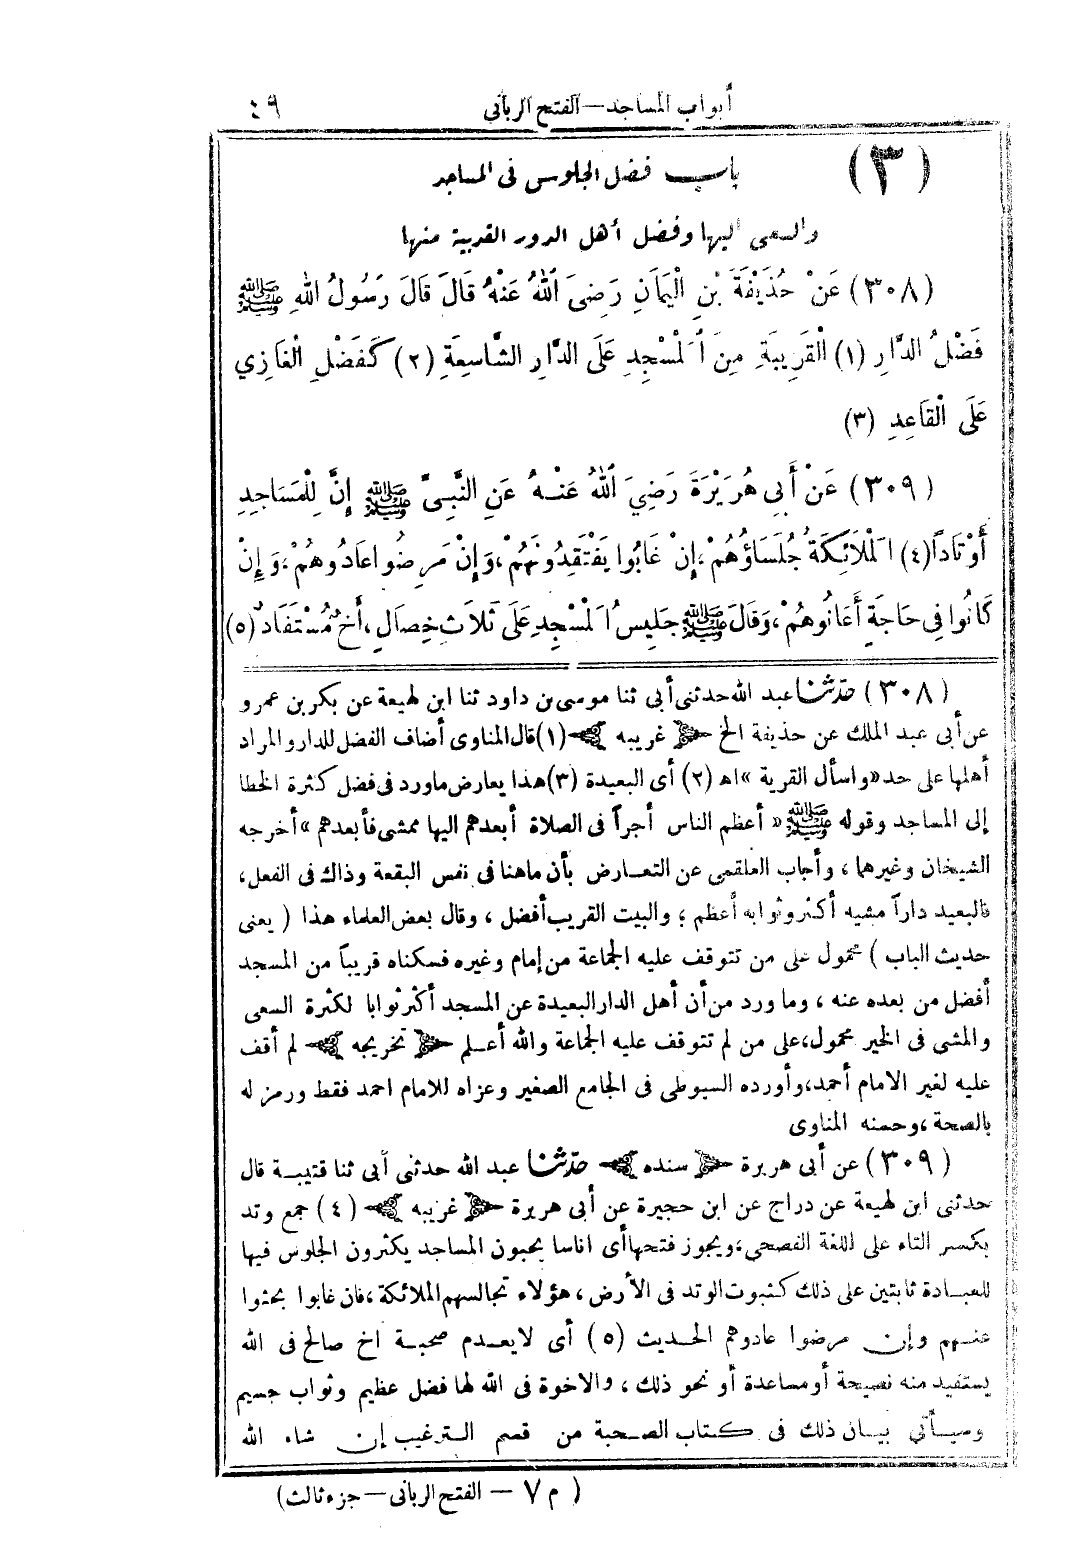 أبواب المساجد — الفتح الربانى ٤٩
(٣) باب فضل الجلوس فى المساجد
والسعى اليها وفضل أهل الدور القريبة منها
(٣٠٨) عَنْ حُذَيْفَةَ بْنِ الْيَمَانِ رَضِىَ اللهُ عَنْهُ قَالَ قَالَ رَسُولُ اللهِ ﷺ
فَضْلُ الدَّارِ (١) الْقَرِيبَةِ مِنَ الْمَسْجِدِ عَلَى الدَّارِ الشَّاسِعَةِ (٢) كَفَضْلِ الْغَازِي
عَلَى الْقَاعِدِ (٣)
(٣٠٩) عَنْ أَبِى هُرَيْرَةَ رَضِيَ اللهُ عَنْهُ عَنِ النَّبِىِّ ﷺ إِنَّ لِلْمَسَاجِدِ
أَوْتَاداً (٤) الْمَلَائِكَةُ جُلَسَاؤُهُمْ، إِنْ غَابُوا يَفْتَقِدُونَهُمْ، وَإِنْ مَرِضُوا عَادُوهُمْ، وَإِنْ
كَانُوا فِى حَاجَةٍ أَعَانُوهُمْ، وَقَالَ ﷺ جَلِيسُ الْمَسْجِدِ عَلَى ثَلَاثِ خِصَالٍ، أَخٌ مُسْتَفَادٌ (٥)
(٣٠٨) حدّثنا عبد الله حدثنى أبى ثنا موسى بن داود ثنا ابن لهيعة عن بكر بن عمرو
عن أبى عبد الملك عن حذيفة الخ ﴿ غريبه ﴾ (١) قال المناوى أضاف الفضل للدار والمراد
أهلها على حد «واسأل القرية» اه (٢) أى البعيدة (٣) هذا يعارض ماورد فى فضل كثرة الخطا
إلى المساجد وقوله ﷺ «أعظم الناس أجراً فى الصلاة أبعدهم اليها ممشى فأبعدهم» أخرجه
الشيخان وغيرهما، وأجاب العلقمى عن التعارض بأن ماهنا فى نفس البقعة وذاك فى الفعل،
فالبعيد داراً مشيه أكثر وثوابه أعظم؛ والبيت القريب أفضل، وقال بعض العلماء هذا (يعنى
حديث الباب) محمول على من تتوقف عليه الجماعة من إمام وغيره فسكناه قريباً من المسجد
أفضل من بعده عنه، وما ورد من أن أهل الدار البعيدة عن المسجد أكثر ثوابا لكثرة السعى
والمشى فى الخير محمول، على من لم تتوقف عليه الجماعة والله أعلم ﴿ تخريجه ﴾ لم أقف
عليه لغير الامام أحمد، وأورده السيوطى فى الجامع الصغير وعزاه للامام احمد فقط ورمز له
بالصحة، وحسنه المناوى
(٣٠٩) عن أبى هريرة ﴿ سنده ﴾ حدّثنا عبد الله حدثنى أبى ثنا قتيبة قال
حدثنى ابن لهيعة عن دراج عن ابن حجيرة عن أبى هريرة ﴿ غريبه ﴾ (٤) جمع وتد
بكسر التاء على اللغة الفصحى، ويجوز فتحها أى اناسا يحبون المساجد يكثرون الجلوس فيها
للعبادة ثابتين على ذلك كثبوت الوتد فى الأرض، هؤلاء تجالسهم الملائكة، فان غابوا بحثوا
عنهم وإن مرضوا عادوهم الحديث (٥) أى لا يعدم صحبة اخ صالح فى الله
يستفيد منه نصيحة أو مساعدة أو نحو ذلك، والاخوة فى الله لها فضل عظيم وثواب جسيم
وسيأتى بيان ذلك فى كتاب الصحبة من قسم الترغيب إن شاء الله
(م ٧ — الفتح الربانى — جزء ثالث)